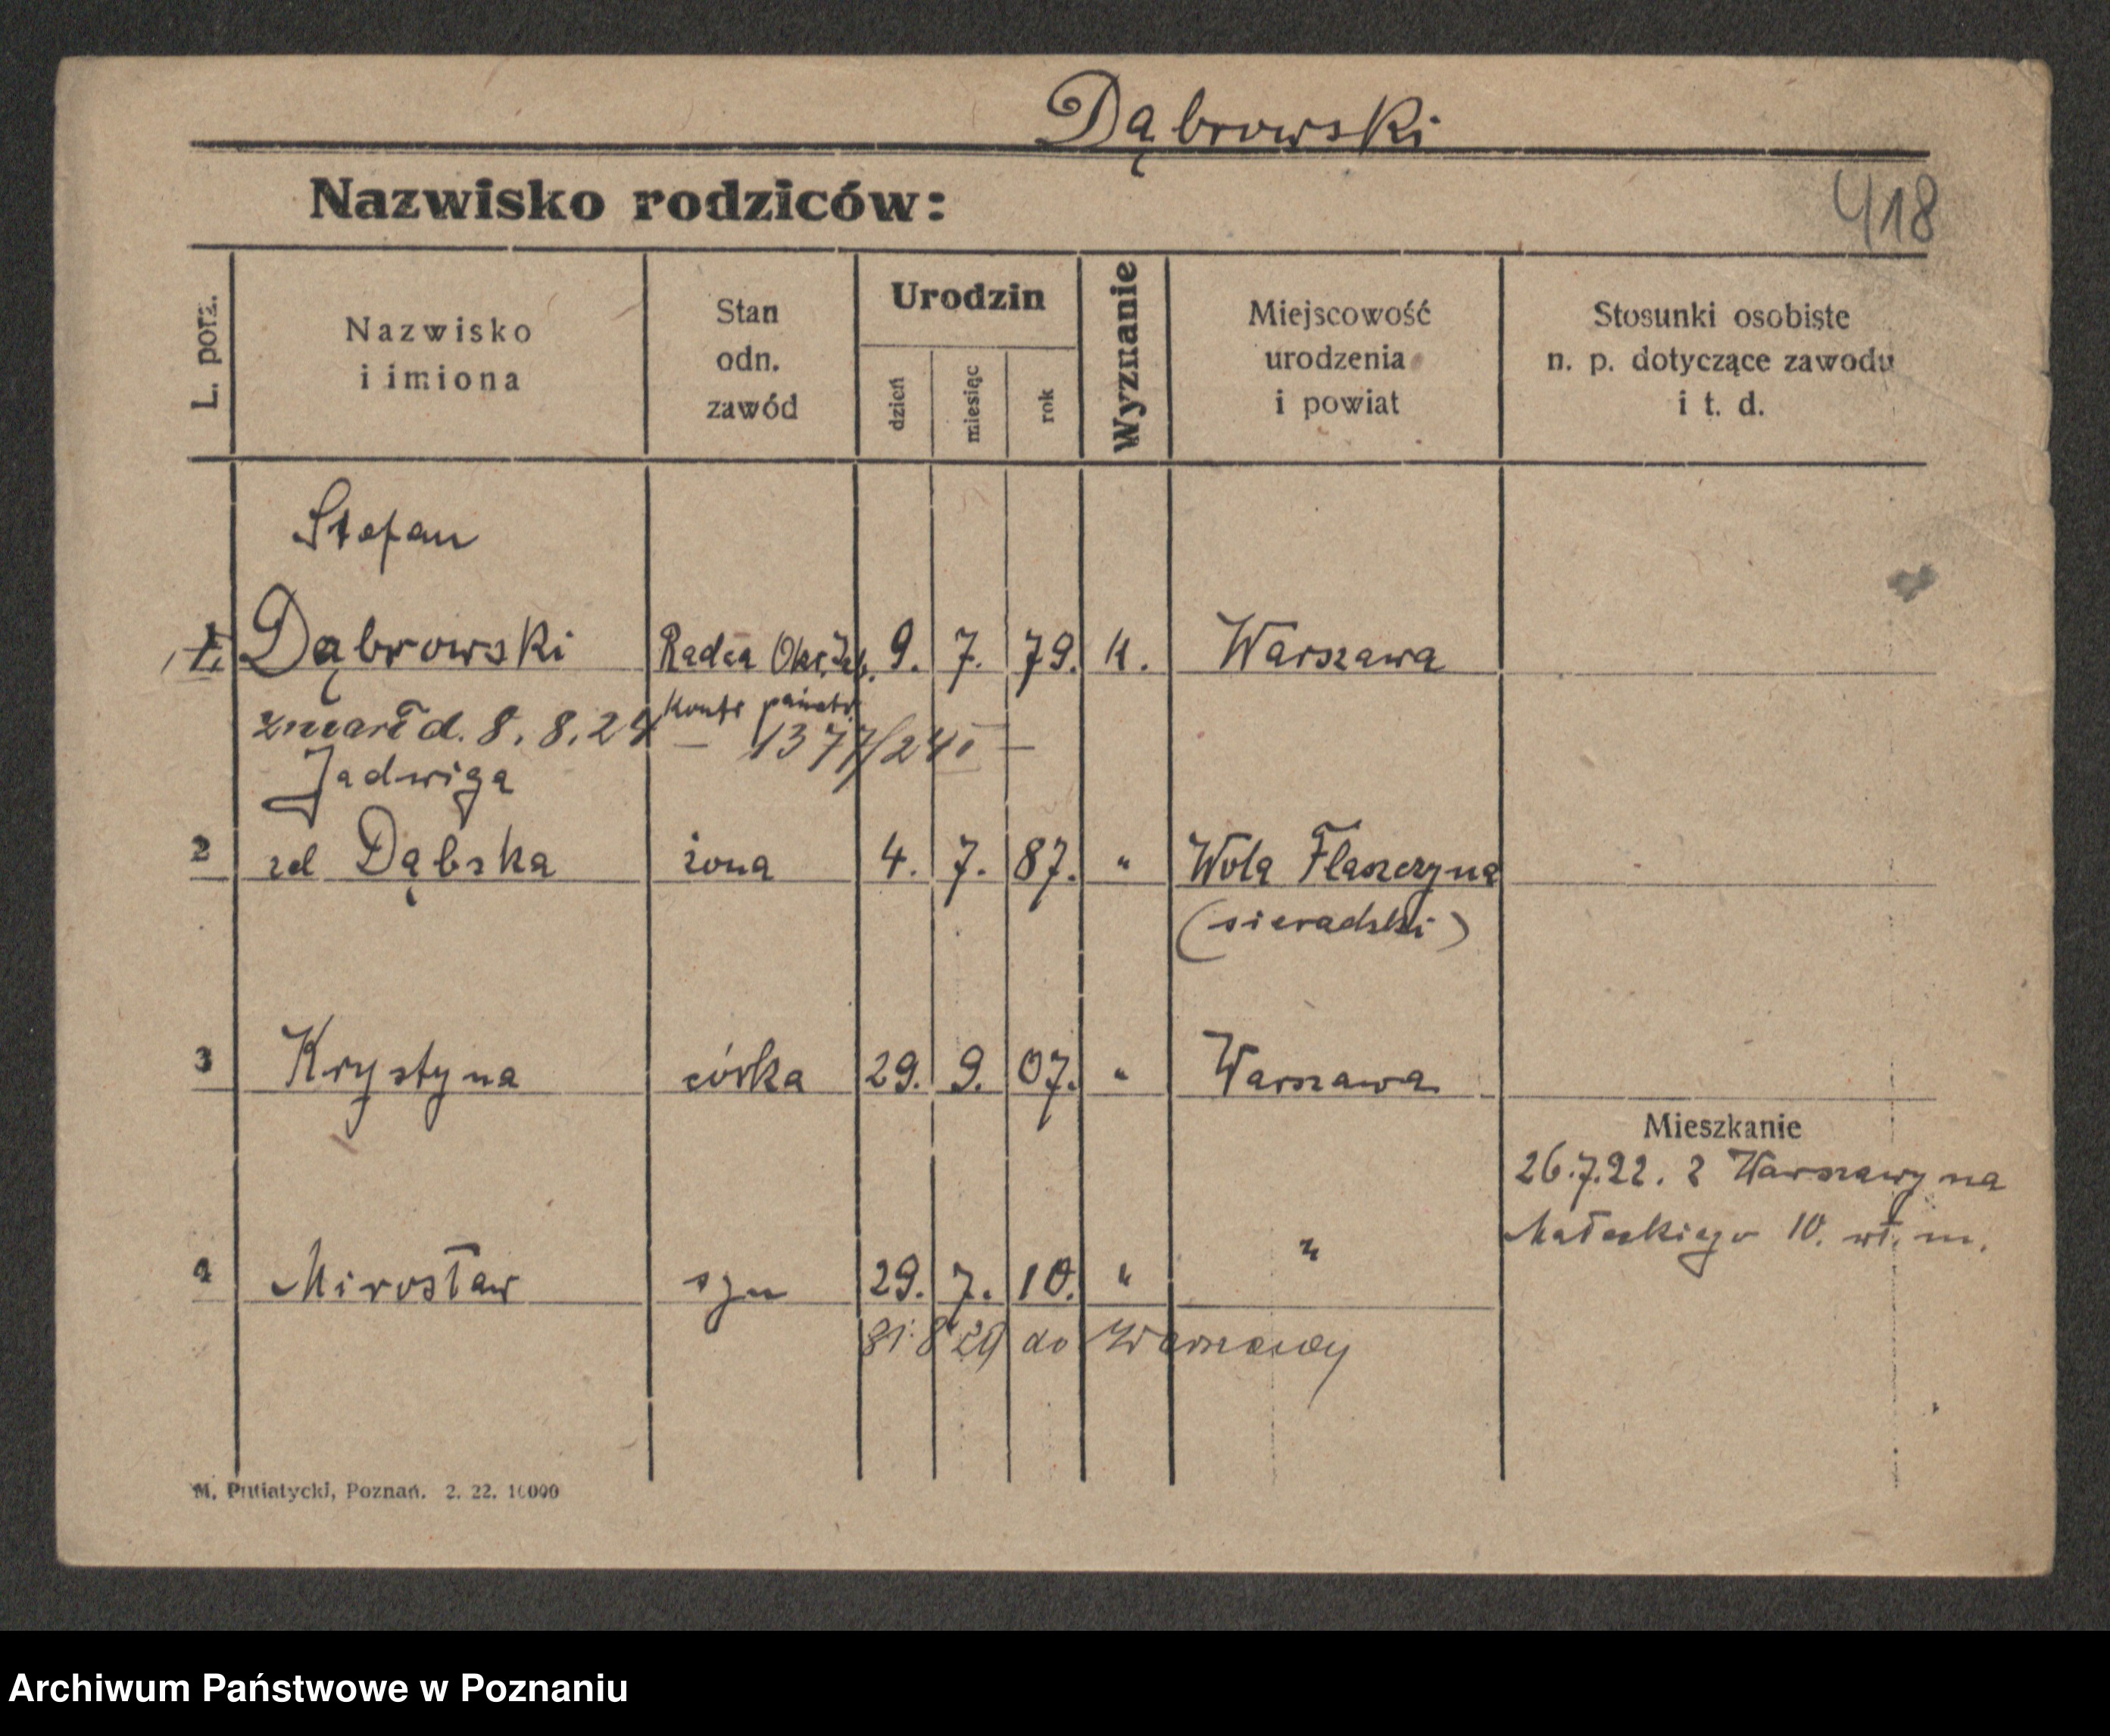 Dąbrowski
Nazwisko rodziców:
418
L. porz.
Nazwisko
i imiona
Stan
odn.
zawód
Urodzin
dzień
miesiąc
rok
Wyznanie
Miejscowość
urodzenia
i powiat
Stosunki osobiste
n. p. dotyczące zawodu
i t. d.
Stefan
1. Dąbrowski Radca Okr. 9. 7. 79. k. Warszawa
Kontr państw.
zmarł d. 8. 8. 24 — 1377/24 —
Jadwiga
2 zd Dąbska żona 4. 7. 87. " Wola Flaszczyna
(sieradzki)
3 Krystyna córka 29. 9. 07. " Warszawa
Mieszkanie
26.7.22. z Warszawy na
Małeckiego 10. wł. m.
4 Mirosław syn 29. 7. 10. " "
31.8 29 do Warszawy
M. Putiatycki, Poznań. 2. 22. 10000
Archiwum Państwowe w Poznaniu